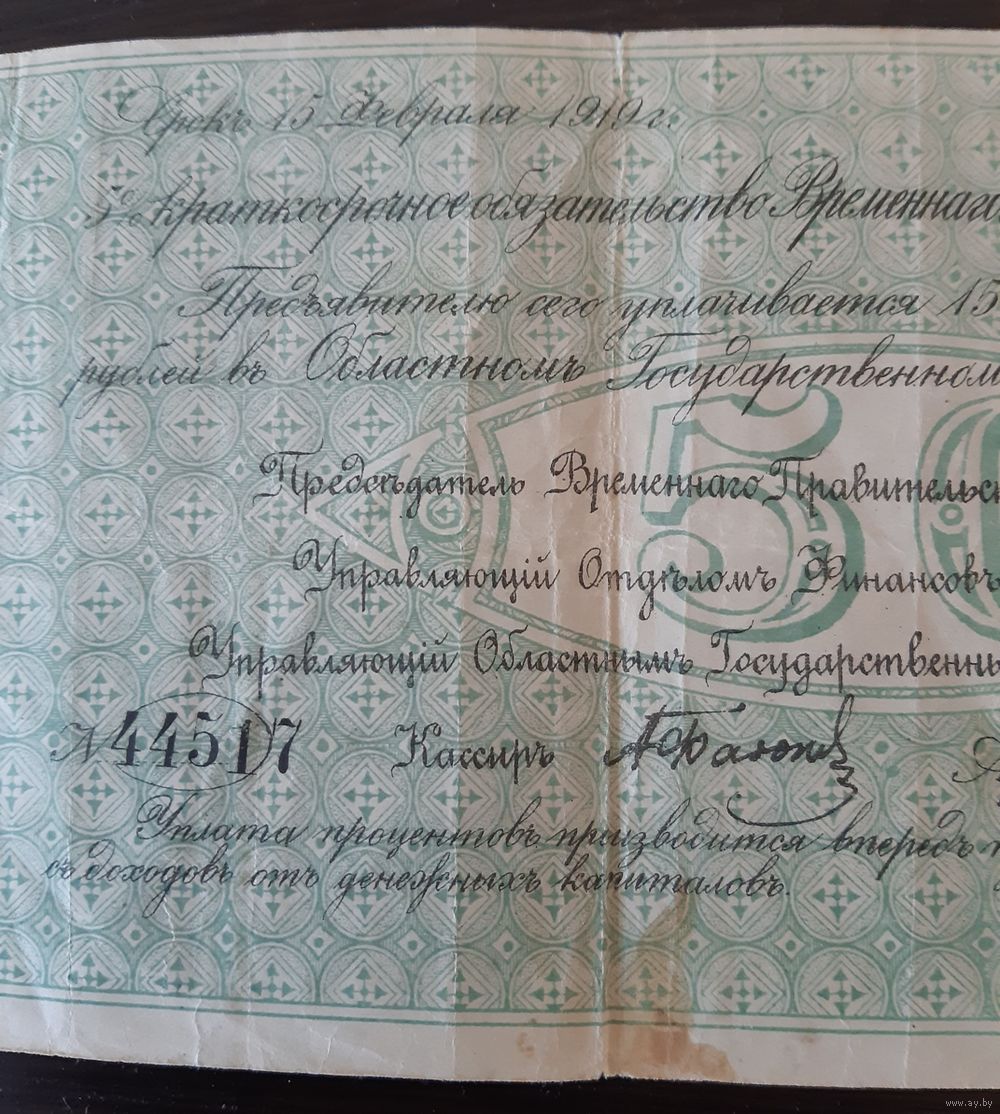 Срокъ 15 Февраля 1919 г.
5% краткосрочное обязательство Временнаго
Предъявителю сего уплачивается 15
рублей въ Областномъ Государственном
50
Предсѣдатель Временнаго Правительс
Управляющій Отдѣломъ Финансовъ
Управляющій Областнымъ Государственны
№ 44517 Кассиръ
Уплата процентовъ производится впередъ
съ доходовъ отъ денежныхъ капиталовъ.
www.ay.by